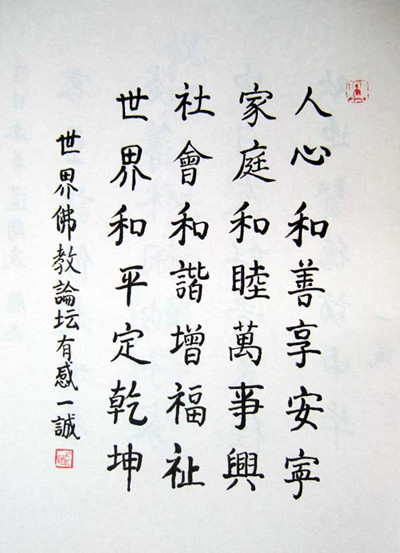 人心和善享安寧
家庭和睦萬事興
社會和諧增福祉
世界和平定乾坤
世界佛教論坛有感一誠